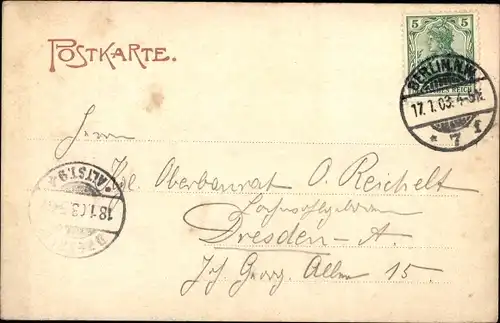 POSTKARTE.
5 5
REICH
BERLIN, N.W.
17. 1. 03. 4-5N.
* 7 f
Herrn
Kgl. Oberbaurat O. Reichelt
Hochwohlgeboren
Dresden-A.
Joh. Georg. Allee 15.
ALTST. 9
18.1.03.